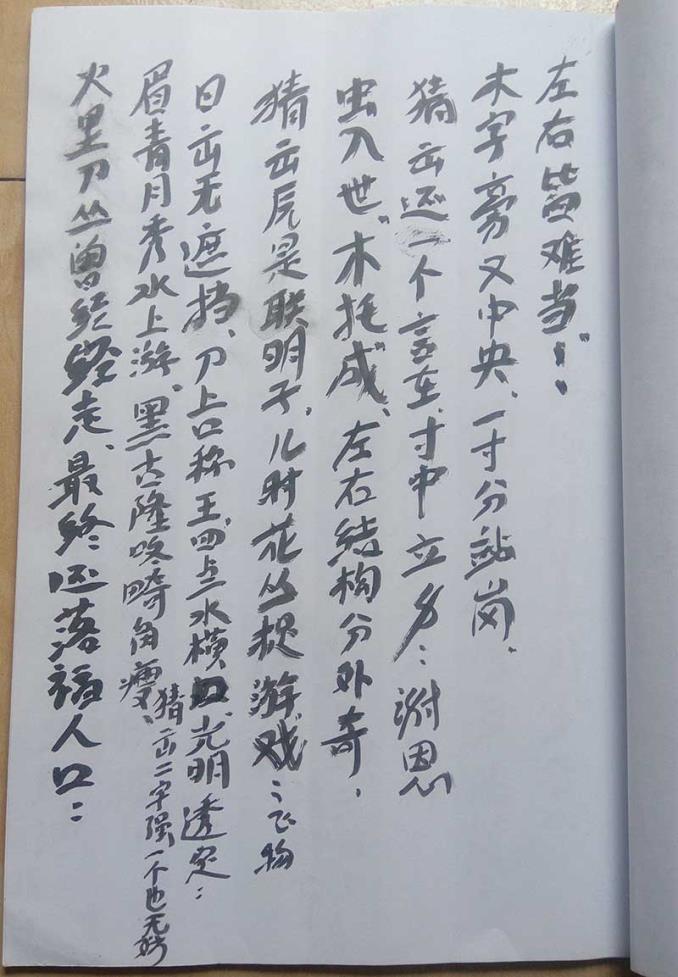 左右皆难当！：
木字旁又中央、一寸分站岗、
猜出还一个言在、寸中立身：谢恩
虫入世"木托成"、左右结构分外奇，
猜出尻是联明子，儿时花丛捉游戏：飞物
日出无遮挡、刀上口称王、四点水横口、光明透定：
眉青月秀水上游、黑古隆咚畸角瘦、猜出二字强一个也无妨
火里刀丛曾经走、最终还落福人口：